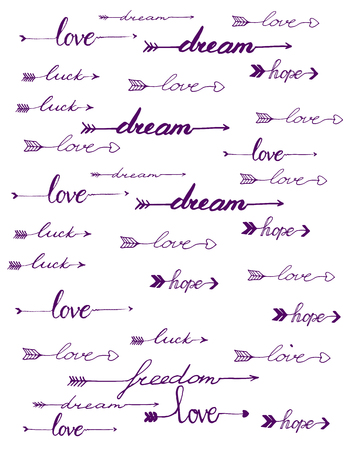 dream
love
love
dream
luck
hope
love
luck
dream
love
love
love
dream
love
love
dream
luck
hope
love
luck
hope
love
love
hope
luck
love
love
freedom
dream
love
love
hope